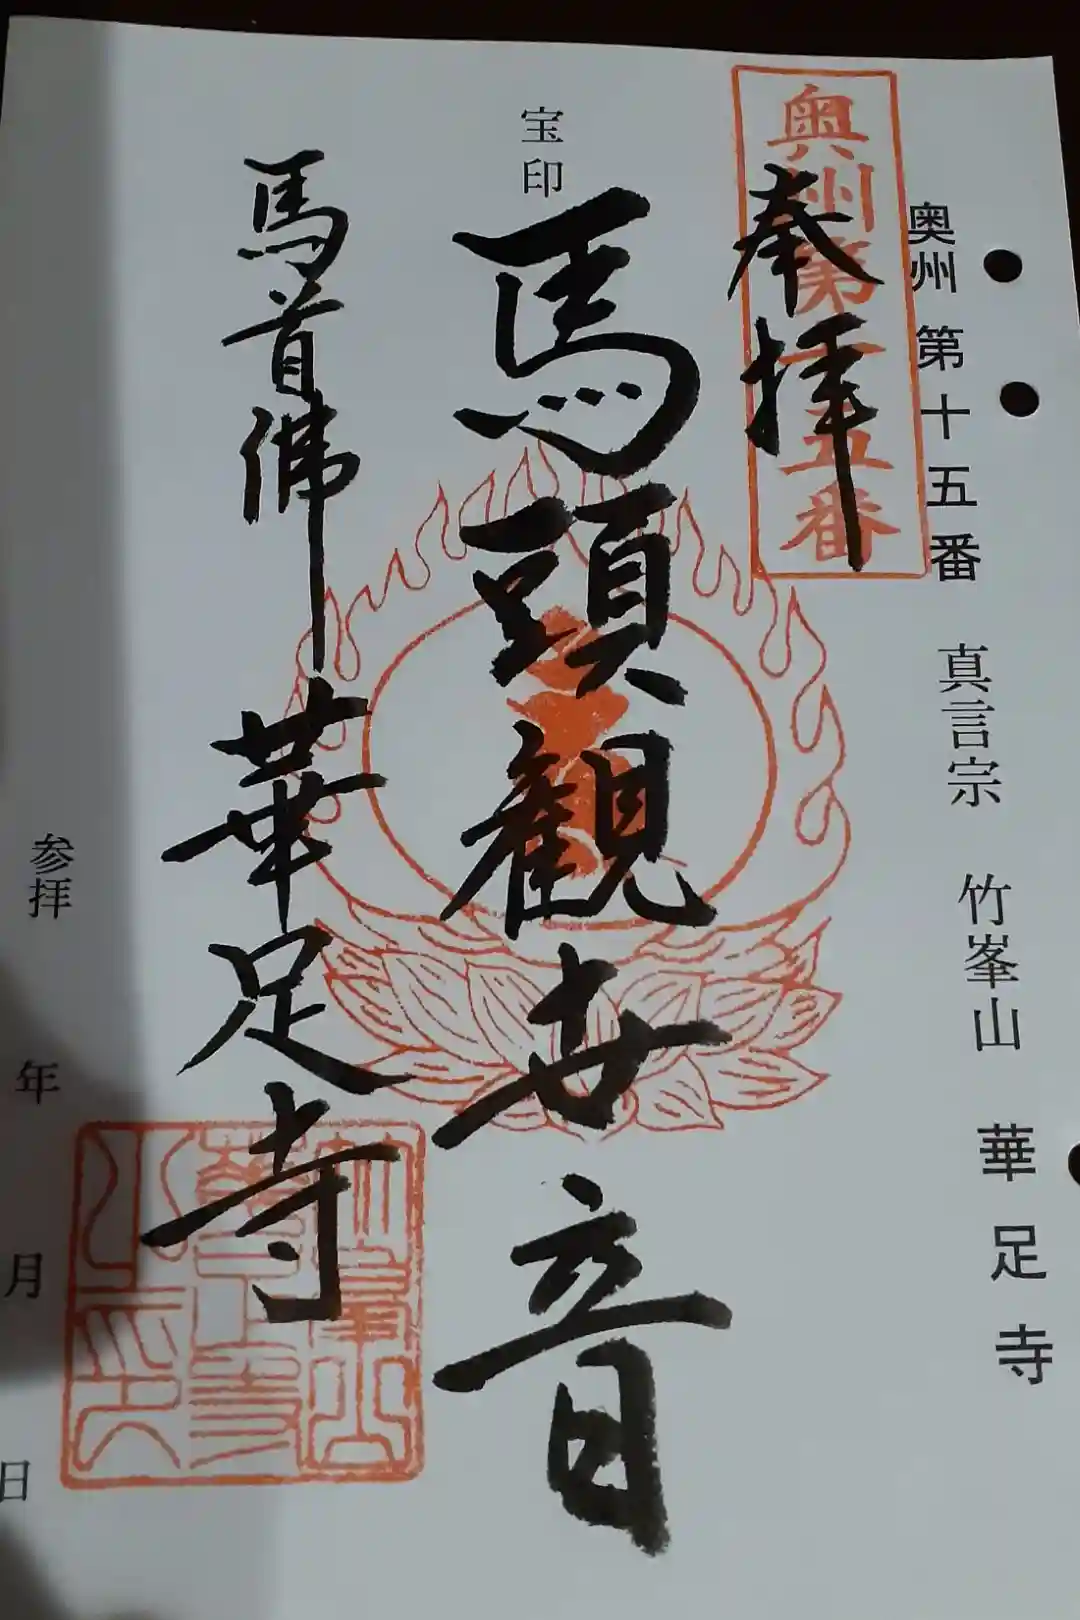 奥州第十五番　真言宗　竹峯山　華足寺
奥州第十五番
奉拝
宝印
馬頭観世音
馬首佛　華足寺
参拝　年　月　日